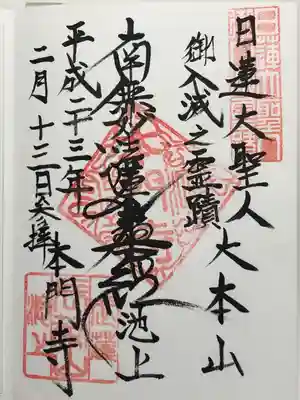 日蓮大聖人大本山
御入滅之霊蹟
南無妙法蓮華経
池上
本門寺
平成二十三年
二月十三日参拝